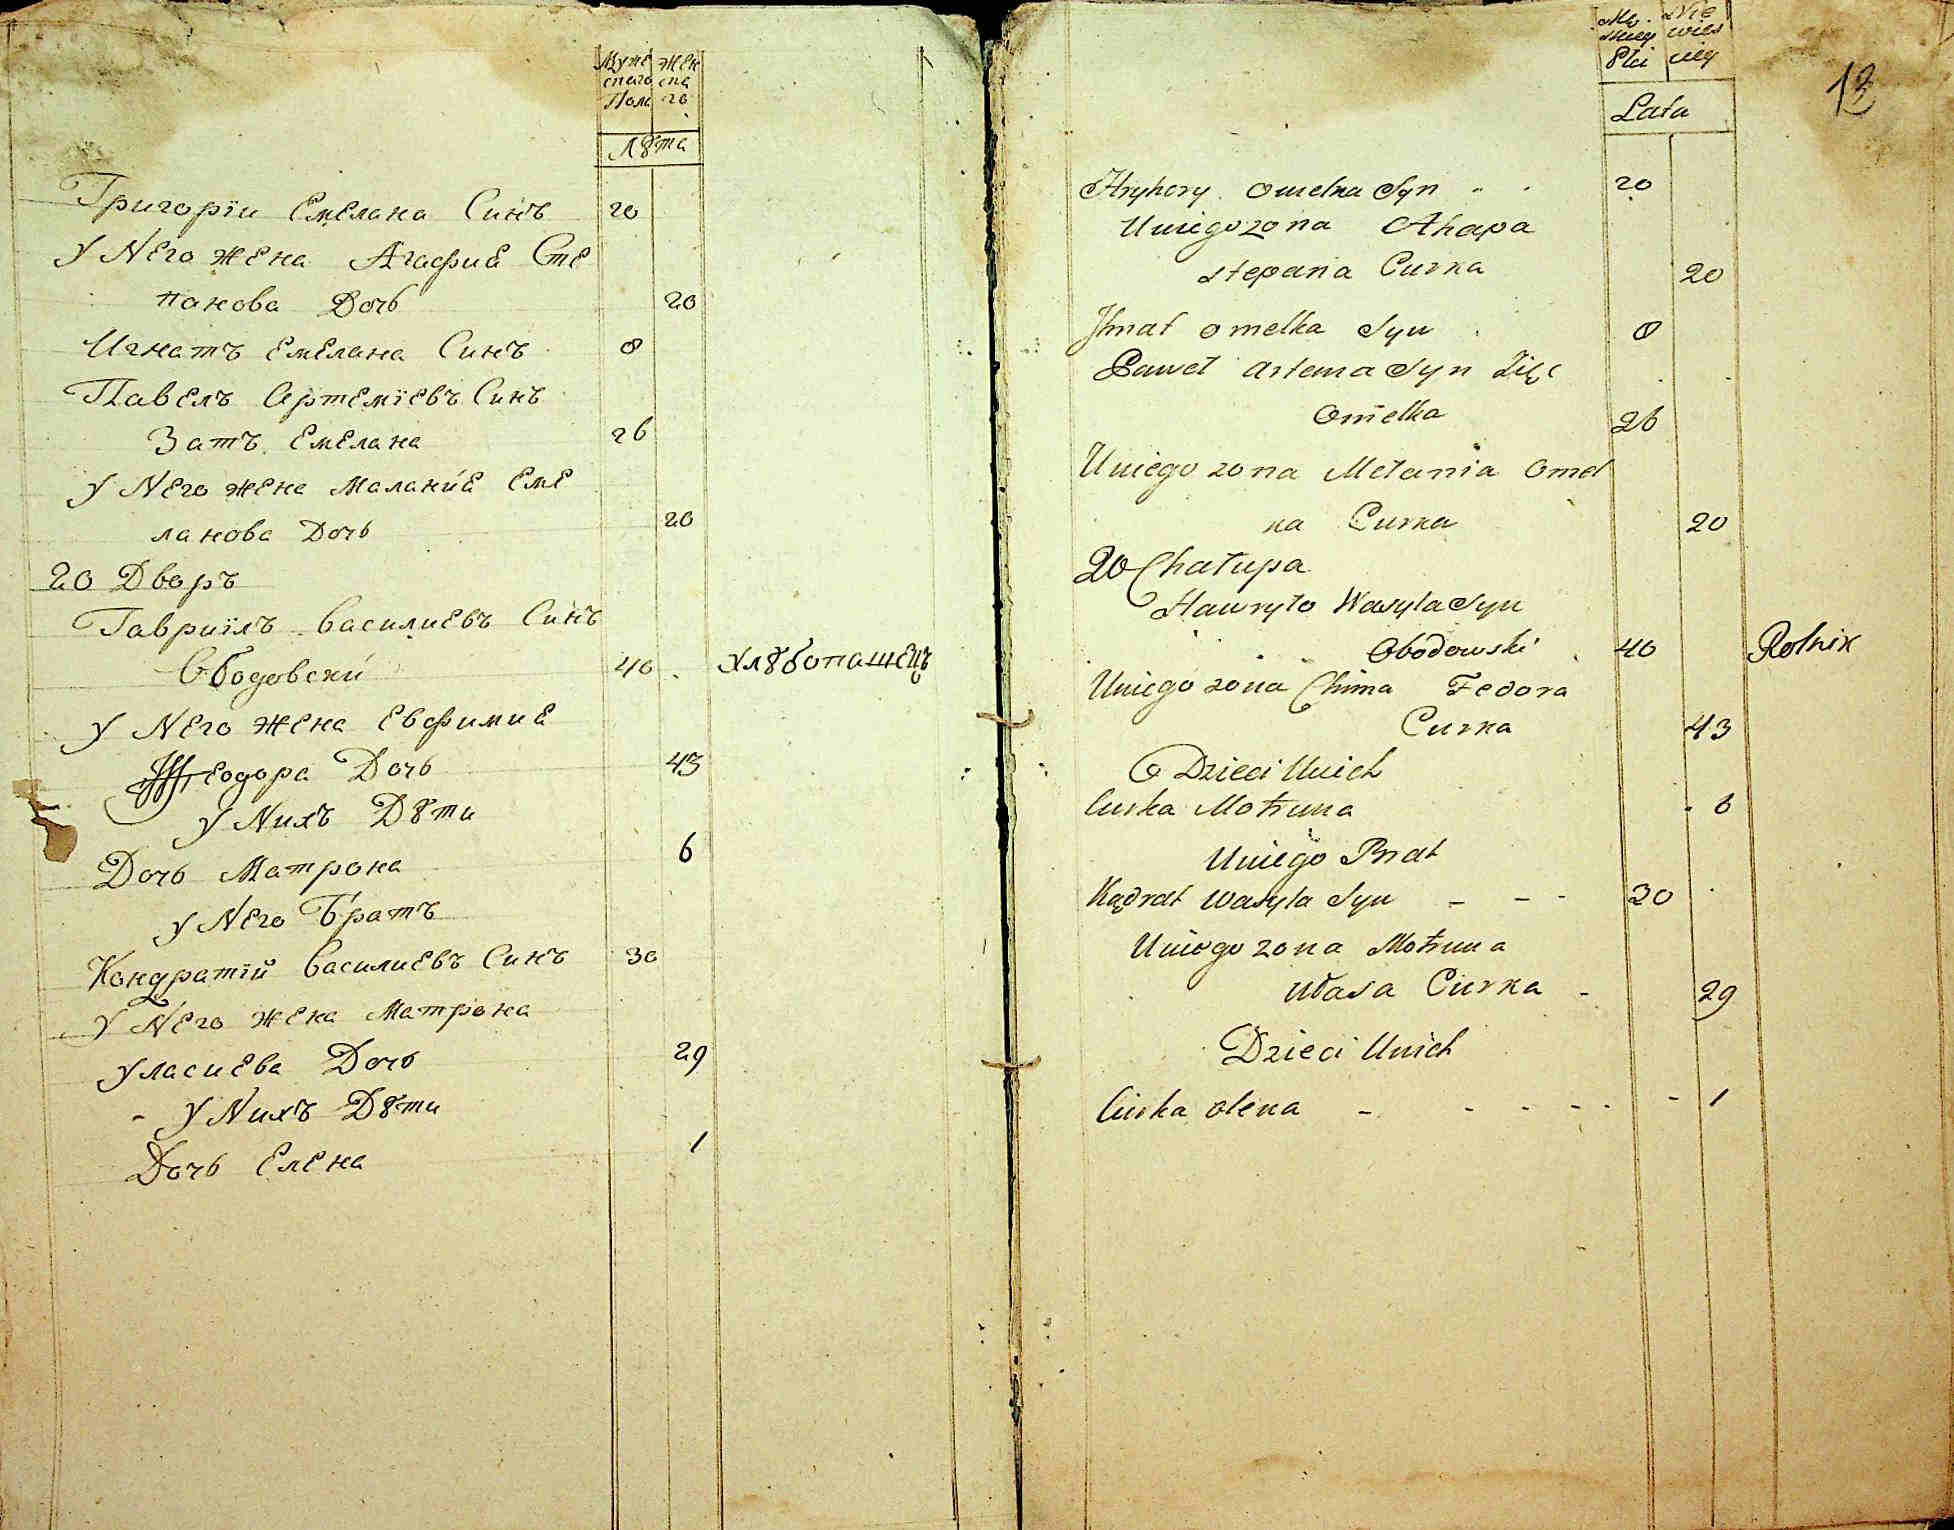 Муже Жен
скаго ска
Пола го
Лѣта
Григорїи Емелана Синъ 20
У Него жена Агафиа Сте
панова Дочь 20
Игнатъ Емелана Синъ 8
Павелъ Артемїевъ Синъ
Затъ Емелана 26
У Него жена Маланиа Еме
ланова Дочь 20
20 Дворъ
Гавриїлъ Василиевъ Синъ
Ободовски 40 Хлѣбопашецъ
У Него жена Евфимиа
Феодора Дочь 43
У Нихъ Дѣти
Дочь Матрона 6
У Него Братъ
Кондратїй Василиевъ Синъ 30
У Него жена Матрона
Уласиева Дочь 29
У Нихъ Дѣти
Дочь Елена 1
Mę Nie
skiey wies
Płci ciey
13
Lata
Hryhory Omelka Syn 20
Uniego zona Ahapa
Stepana Curka 20
Ihnat Omelka Syn 8
Paweł Artema Syn Zięc
Omelka 26
Uniego zona Melania Omel
ka Curka 20
20 Chałupa
Hawryło Wasyla Syn
Obodowski 40 Rolnik
Uniego zona Chima Fedora
Curka 43
Dzieci Unich
Curka Motruna 6
Uniego Brat
Kądrat Wasyla Syn 30
Uniego zona Motruna
Ułasa Curka 29
Dzieci Unich
Curka Olena 1